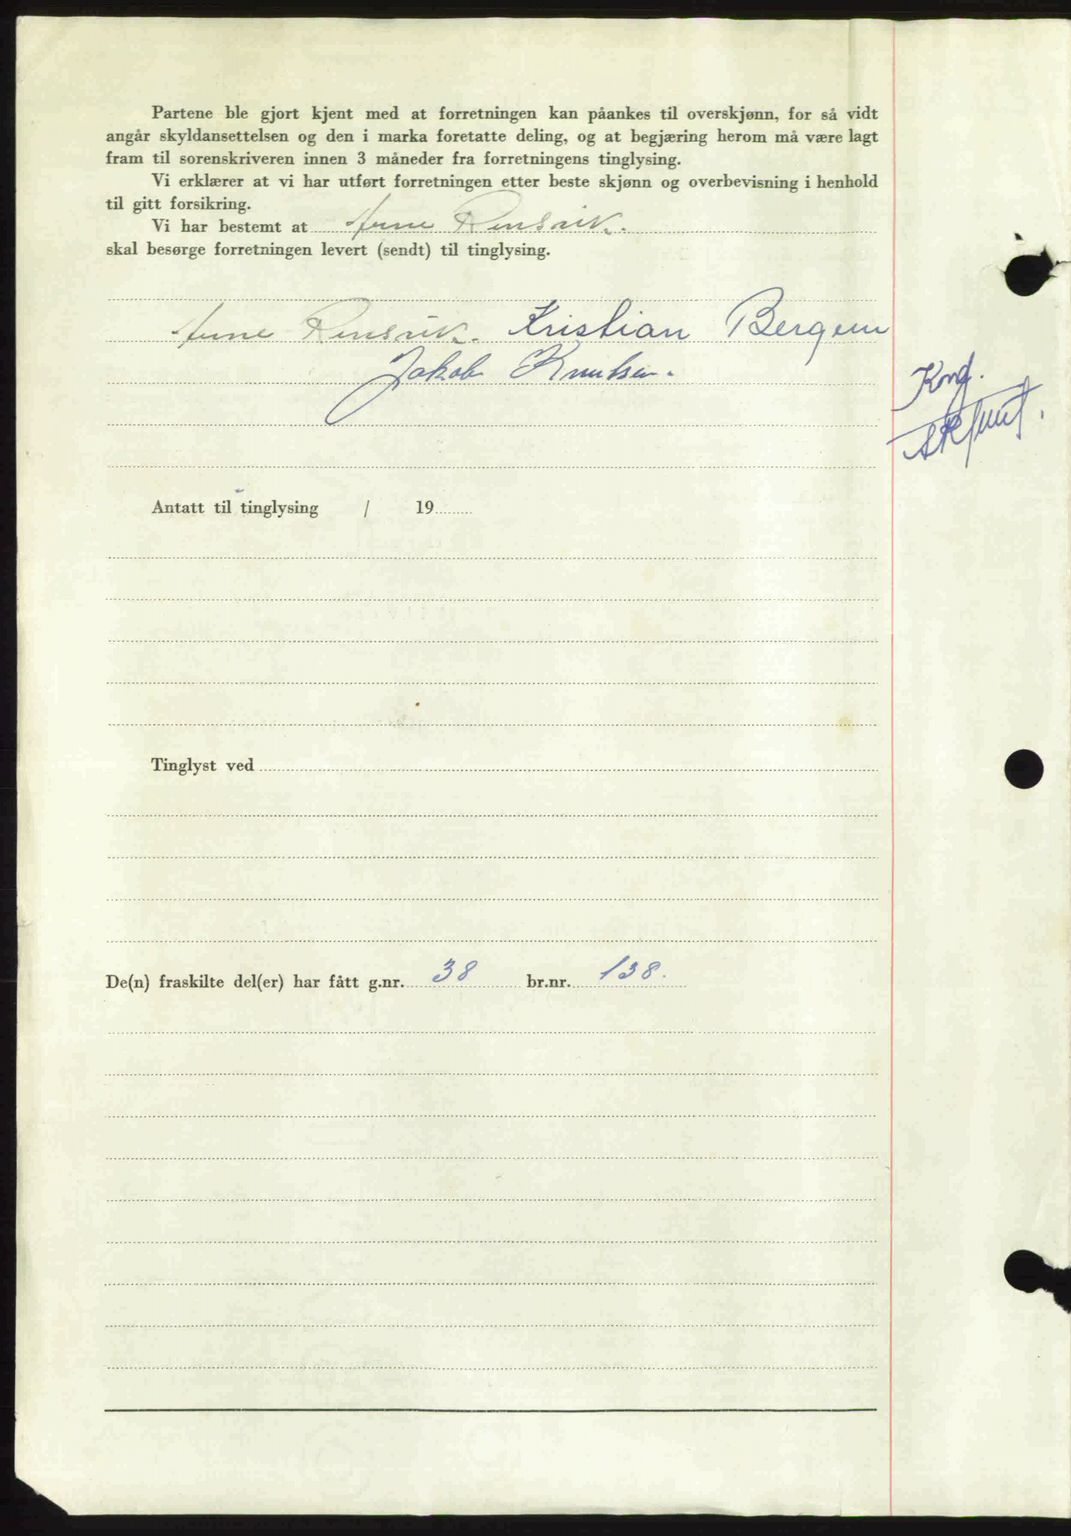 Partene ble gjort kjent med at forretningen kan påankes til overskjønn, for så vidt
angår skyldansettelsen og den i marka foretatte deling, og at begjæring herom må være lagt
fram til sorenskriveren innen 3 måneder fra forretningens tinglysing.
Vi erklærer at vi har utført forretningen etter beste skjønn og overbevisning i henhold
til gitt forsikring.
Vi har bestemt at Arne Rensvik.
skal besørge forretningen levert (sendt) til tinglysing.
Arne Rensvik. Kristian Bergem
Jakob Knutsen.
Antatt til tinglysing / 19
Tinglyst ved
De(n) fraskilte del(er) har fått g.nr. 38 br.nr. 138.